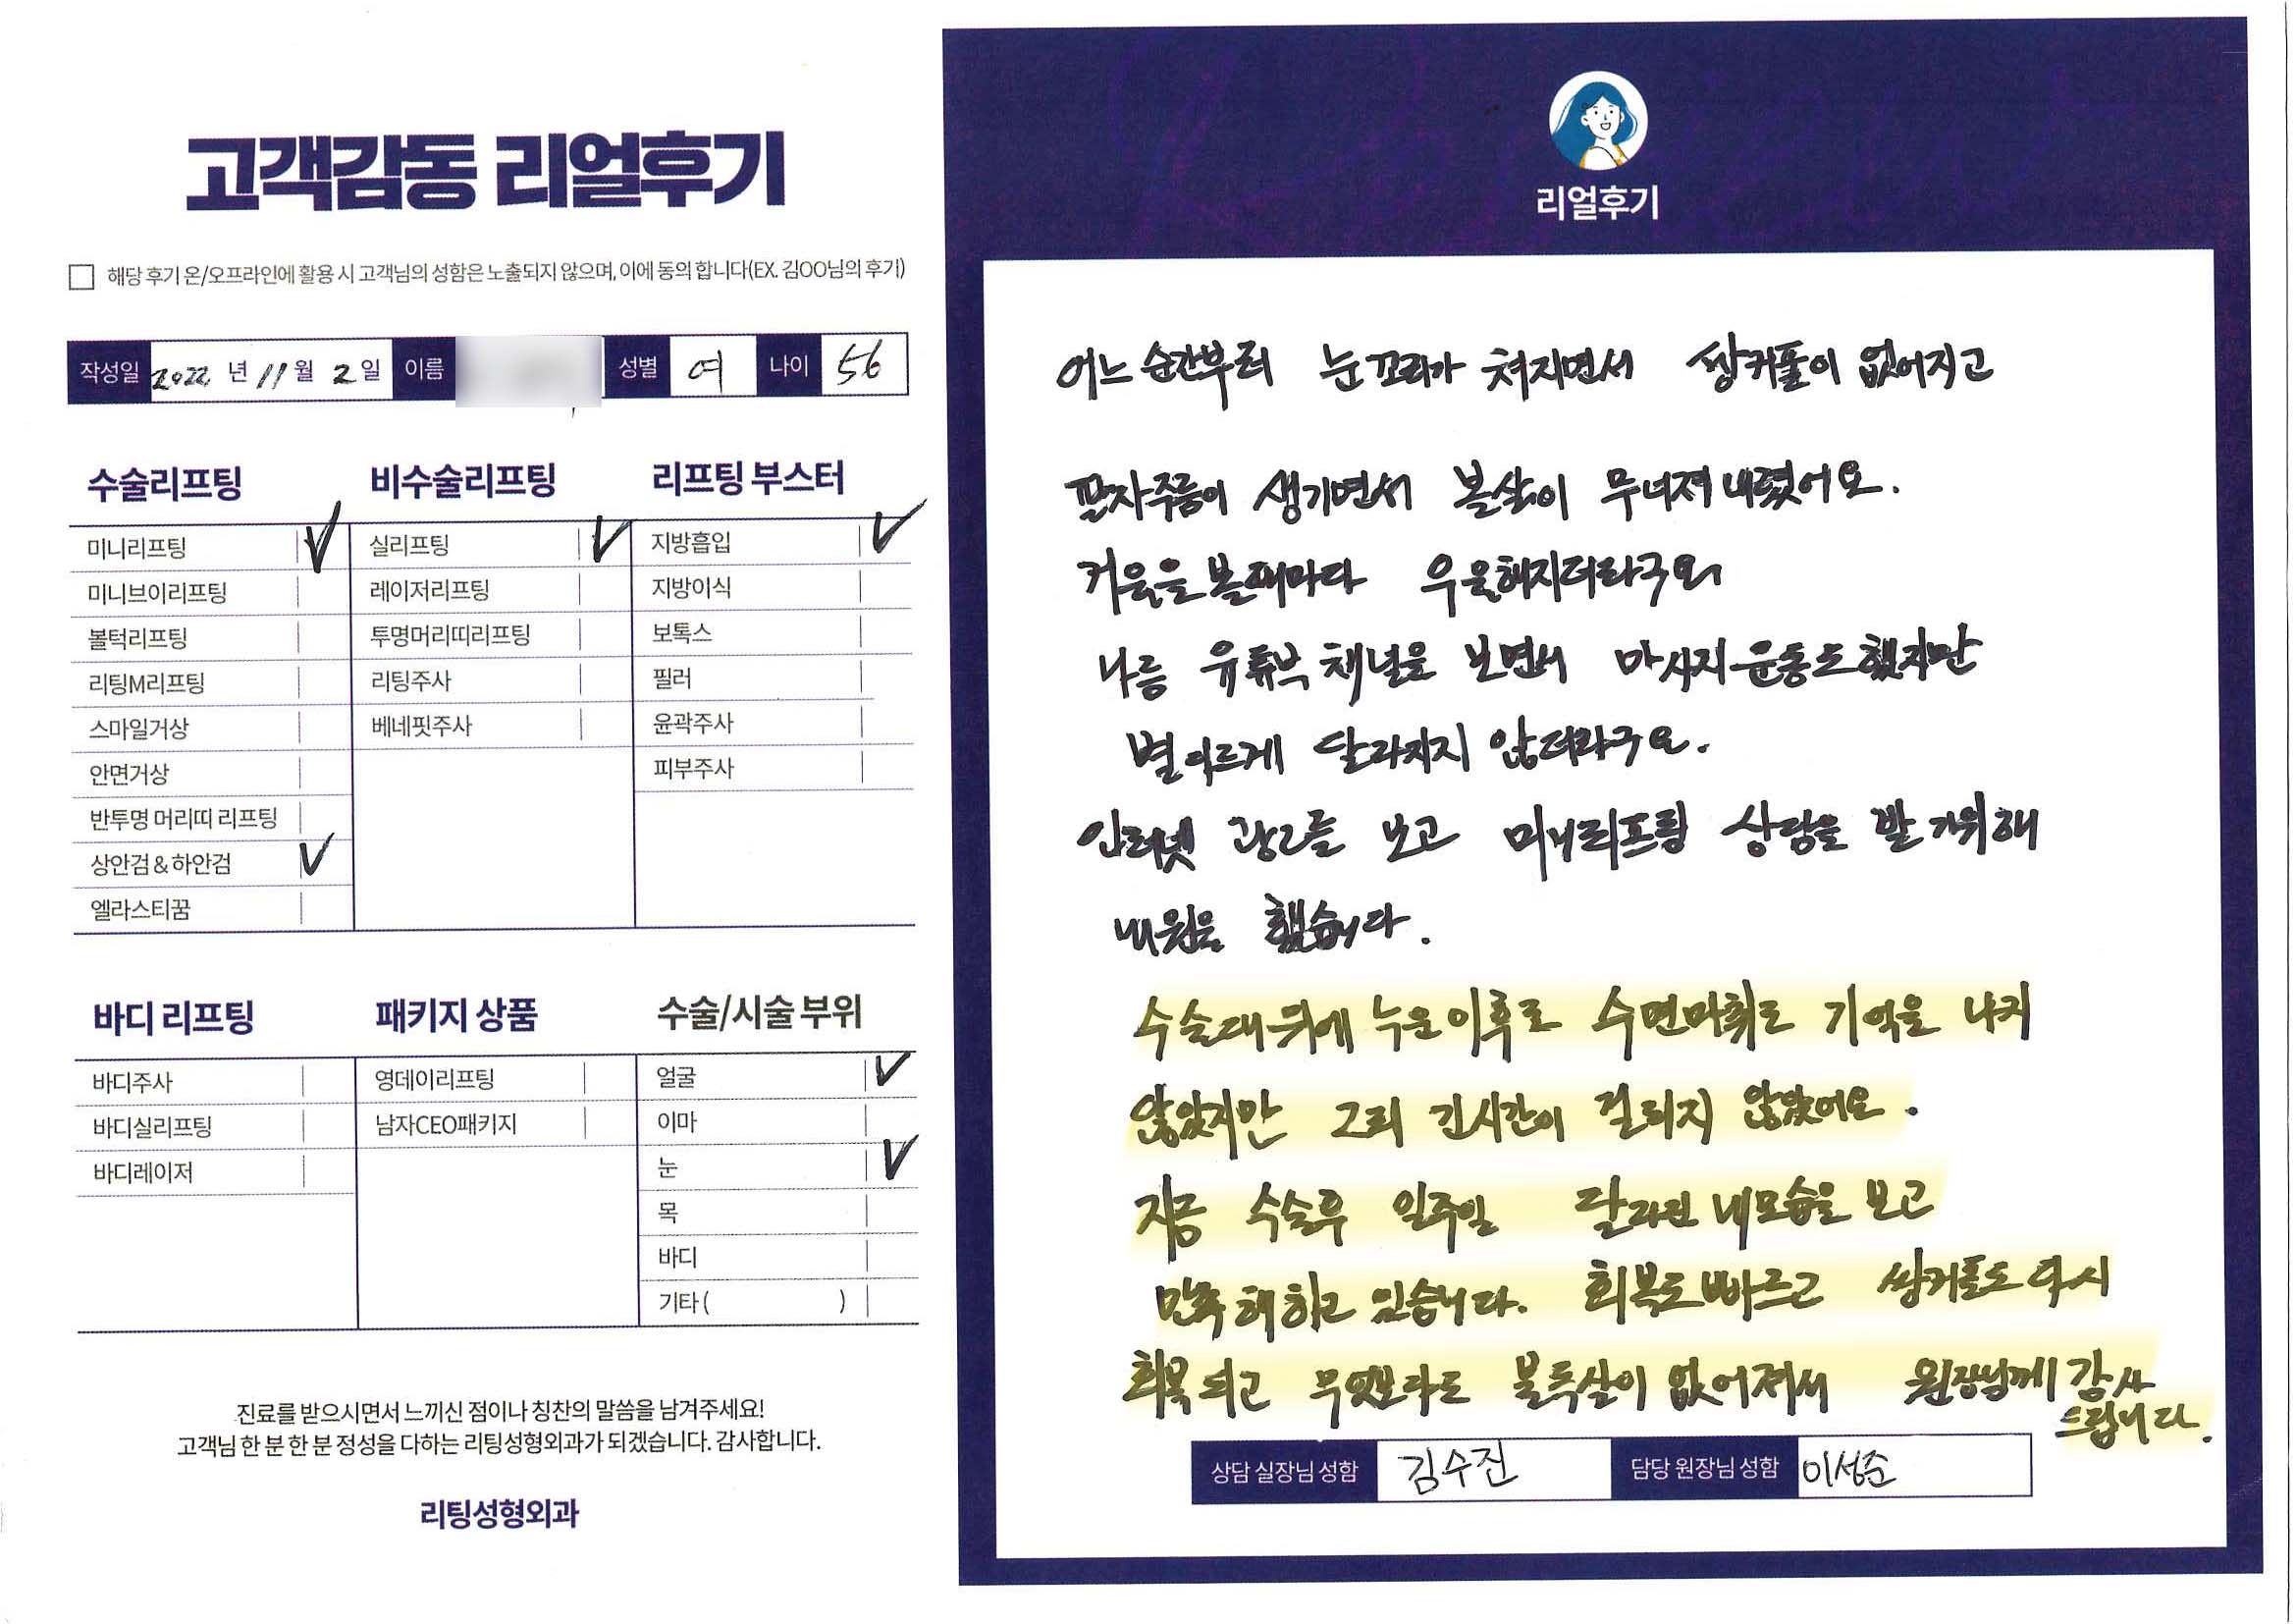 고객감동 리얼후기
해당 후기 온/오프라인에 활용 시 고객님의 성함은 노출되지 않으며, 이에 동의 합니다(EX. 김OO님의 후기)
작성일 2022 년 11 월 2 일 이름 성별 여 나이 56
수술리프팅
미니리프팅 V
미니브이리프팅
볼턱리프팅
리팅M리프팅
스마일거상
안면거상
반투명 머리띠 리프팅
상안검 & 하안검 V
엘라스티꿈
비수술리프팅
실리프팅 V
레이저리프팅
투명머리띠리프팅
리팅주사
베네핏주사
리프팅 부스터
지방흡입 V
지방이식
보톡스
필러
윤곽주사
피부주사
바디 리프팅
바디주사
바디실리프팅
바디레이저
패키지 상품
영데이리프팅
남자CEO패키지
수술/시술 부위
얼굴 V
이마
눈 V
목
바디
기타 ( )
진료를 받으시면서 느끼신 점이나 칭찬의 말씀을 남겨주세요!
고객님 한 분 한 분 정성을 다하는 리팅성형외과가 되겠습니다. 감사합니다.
리팅성형외과
리얼후기
어느 순간부터 눈꼬리가 쳐지면서 쌍커풀이 없어지고
팔자주름이 생기면서 볼살이 무너져 내렸어요.
거울을 볼때마다 우울해지더라구요
나름 유튜브 채널을 보면서 마사지 운동도 했지만
별 다르게 달라지지 않더라구요.
인터넷 광고를 보고 미니리프팅 상담을 받기위해
내원을 했습니다.
수술대 위에 누운 이후로 수면마취로 기억을 나지
않았지만 그리 긴시간이 걸리지 않았어요.
지금 수술후 일주일 달라진 내모습을 보고
만족해하고 있습니다. 회복도 빠르고 쌍커풀도 다시
회복되고 무엇보다도 불독살이 없어져서 원장님께 감사
드립니다.
상담 실장님 성함 김수진 담당 원장님 성함 이성준